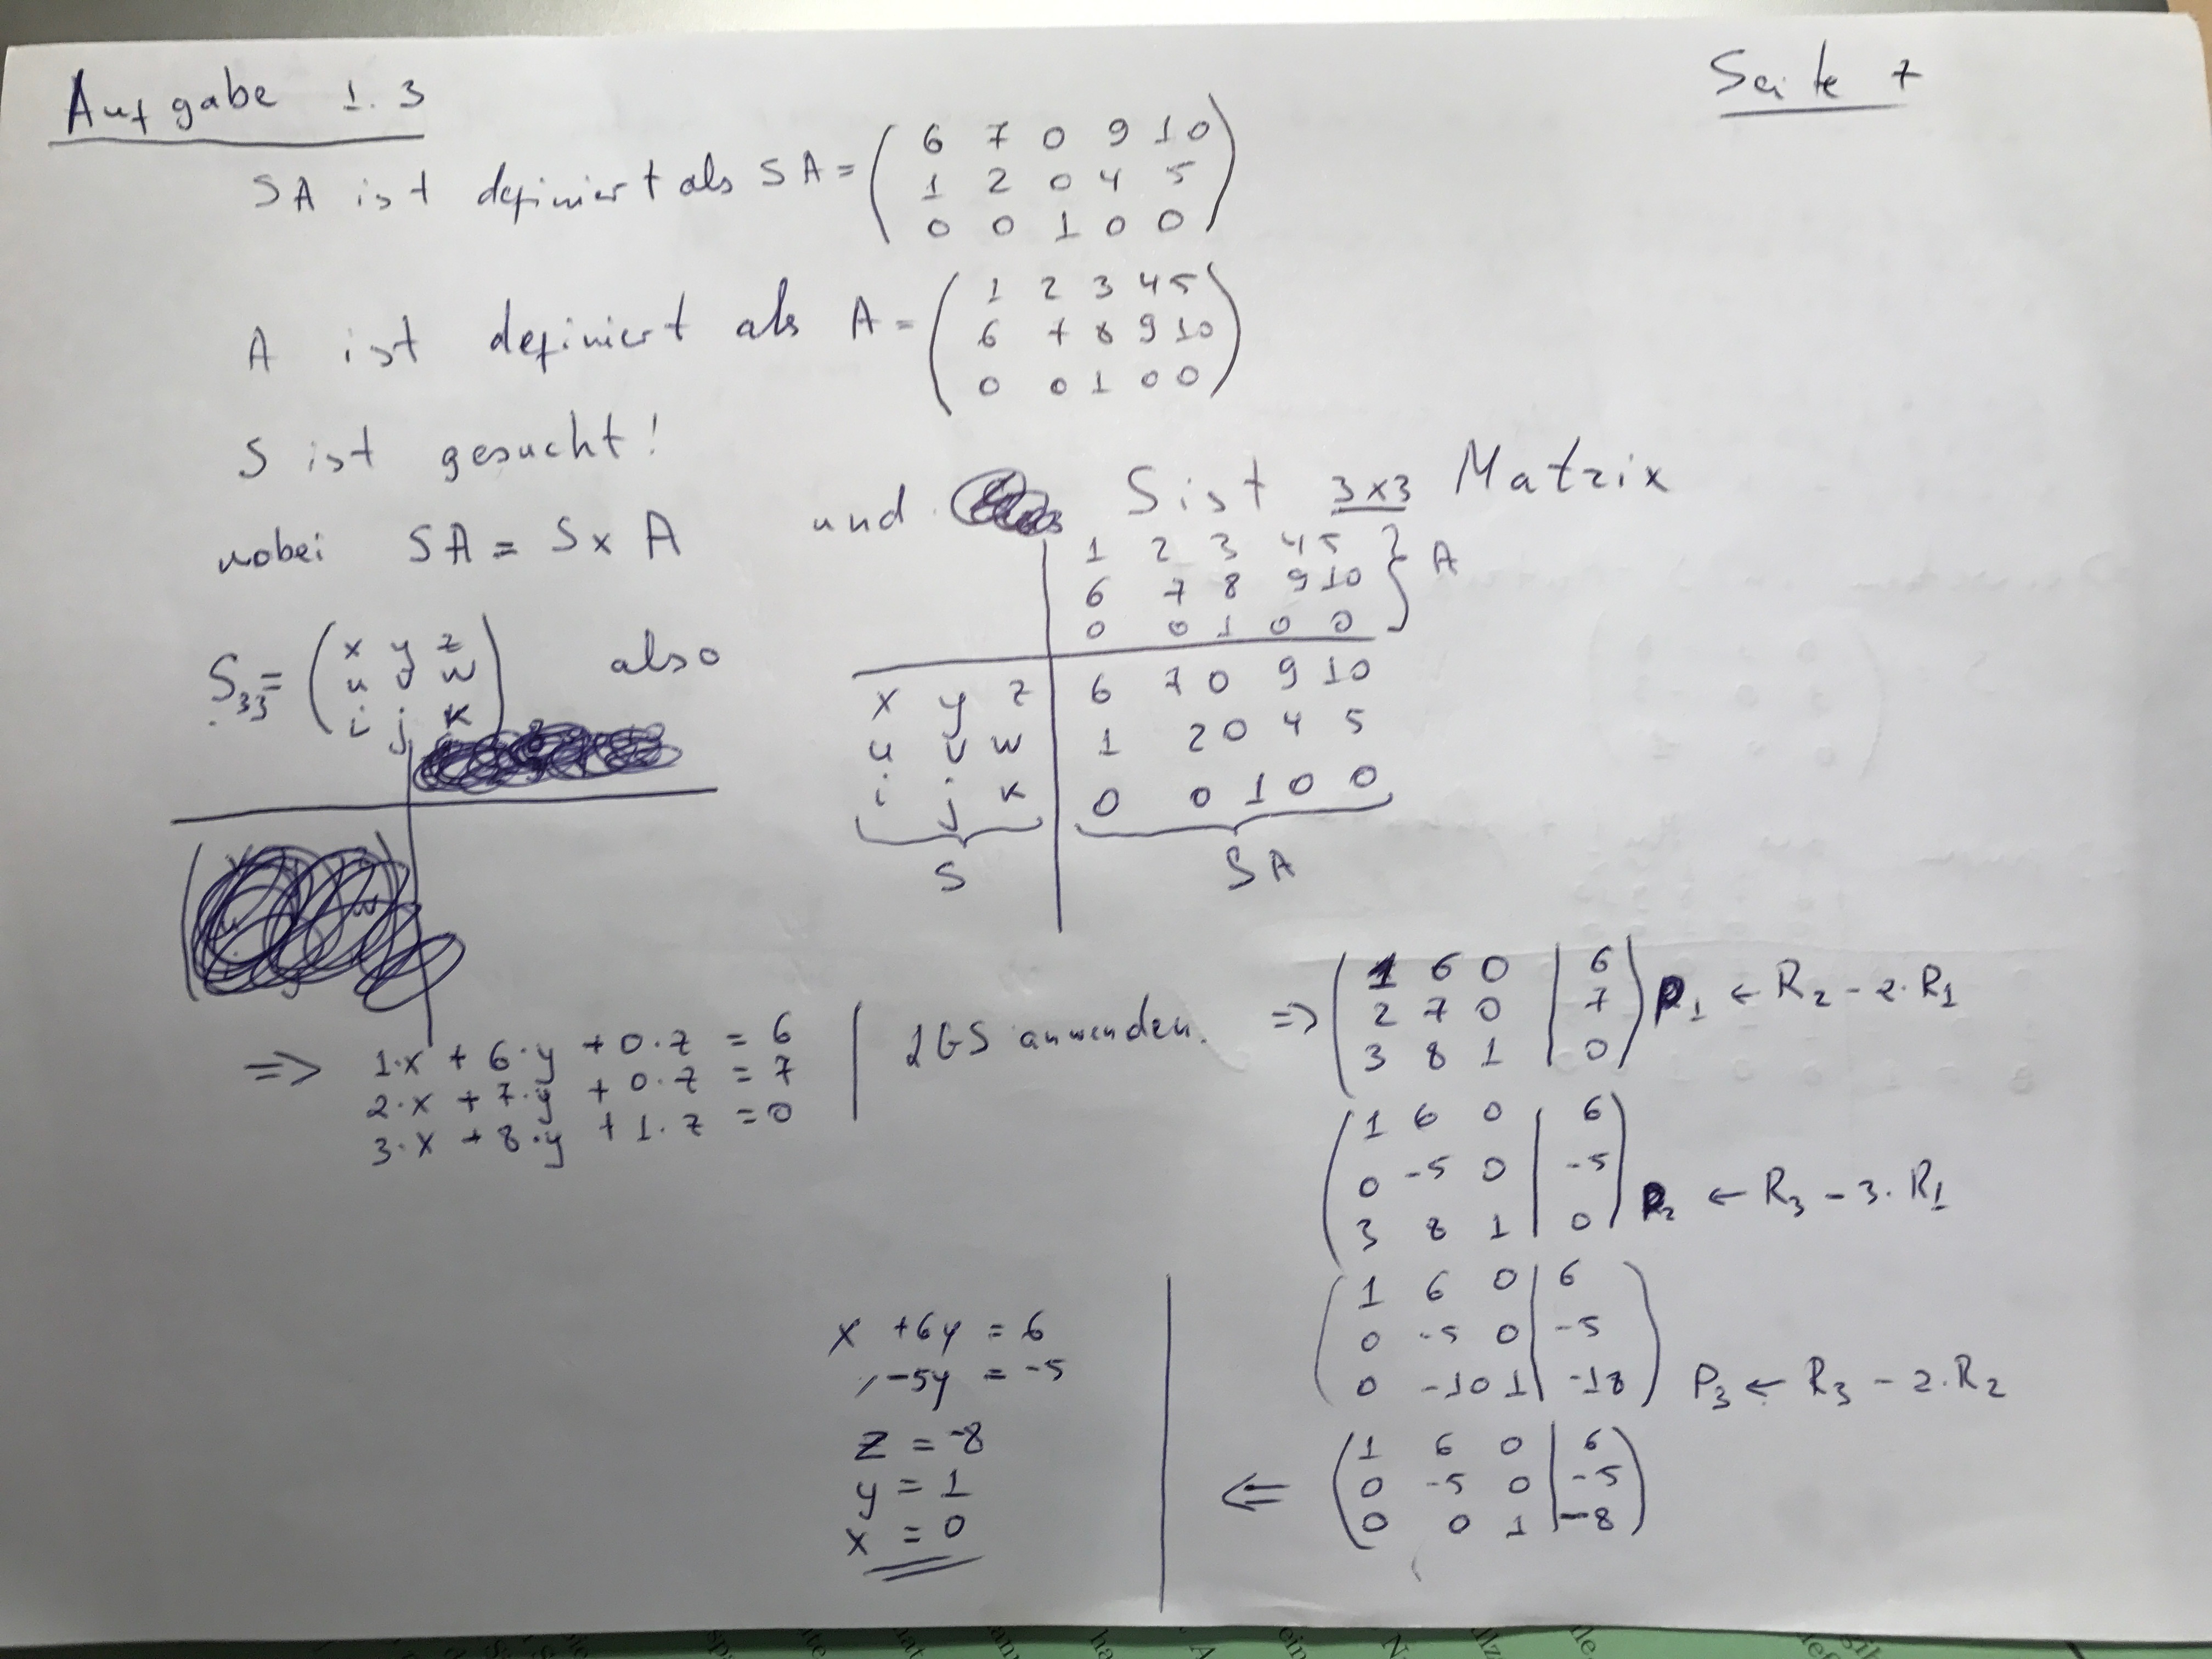 Aufgabe 1.3
Seite 7
SA ist definiert als SA = ( 6 7 0 9 10
1 2 0 4 5
0 0 1 0 0 )
A ist definiert als A = ( 1 2 3 4 5
6 7 8 9 10
0 0 1 0 0 )
S ist gesucht!
wobei SA = S x A und S ist 3x3 Matrix
S33 = ( x y z
u v w
i j k ) also
1 2 3 4 5 } A
6 7 8 9 10
0 0 1 0 0
x y z | 6 7 0 9 10
u v w | 1 2 0 4 5
i j k | 0 0 1 0 0
S SA
=> 1·x + 6·y + 0·z = 6
2·x + 7·y + 0·z = 7
3·x + 8·y + 1·z = 0
| LGS anwenden.
=> ( 1 6 0 | 6
2 7 0 | 7
3 8 1 | 0 ) R1 ← R2 - 2·R1
( 1 6 0 | 6
0 -5 0 | -5
3 8 1 | 0 ) R2 ← R3 - 3·R1
( 1 6 0 | 6
0 -5 0 | -5
0 -10 1 | -18 ) P3 ← R3 - 2·R2
( 1 6 0 | 6
0 -5 0 | -5
0 0 1 | -8 )
<=
x +6y = 6
-5y = -5
z = -8
y = 1
x = 0